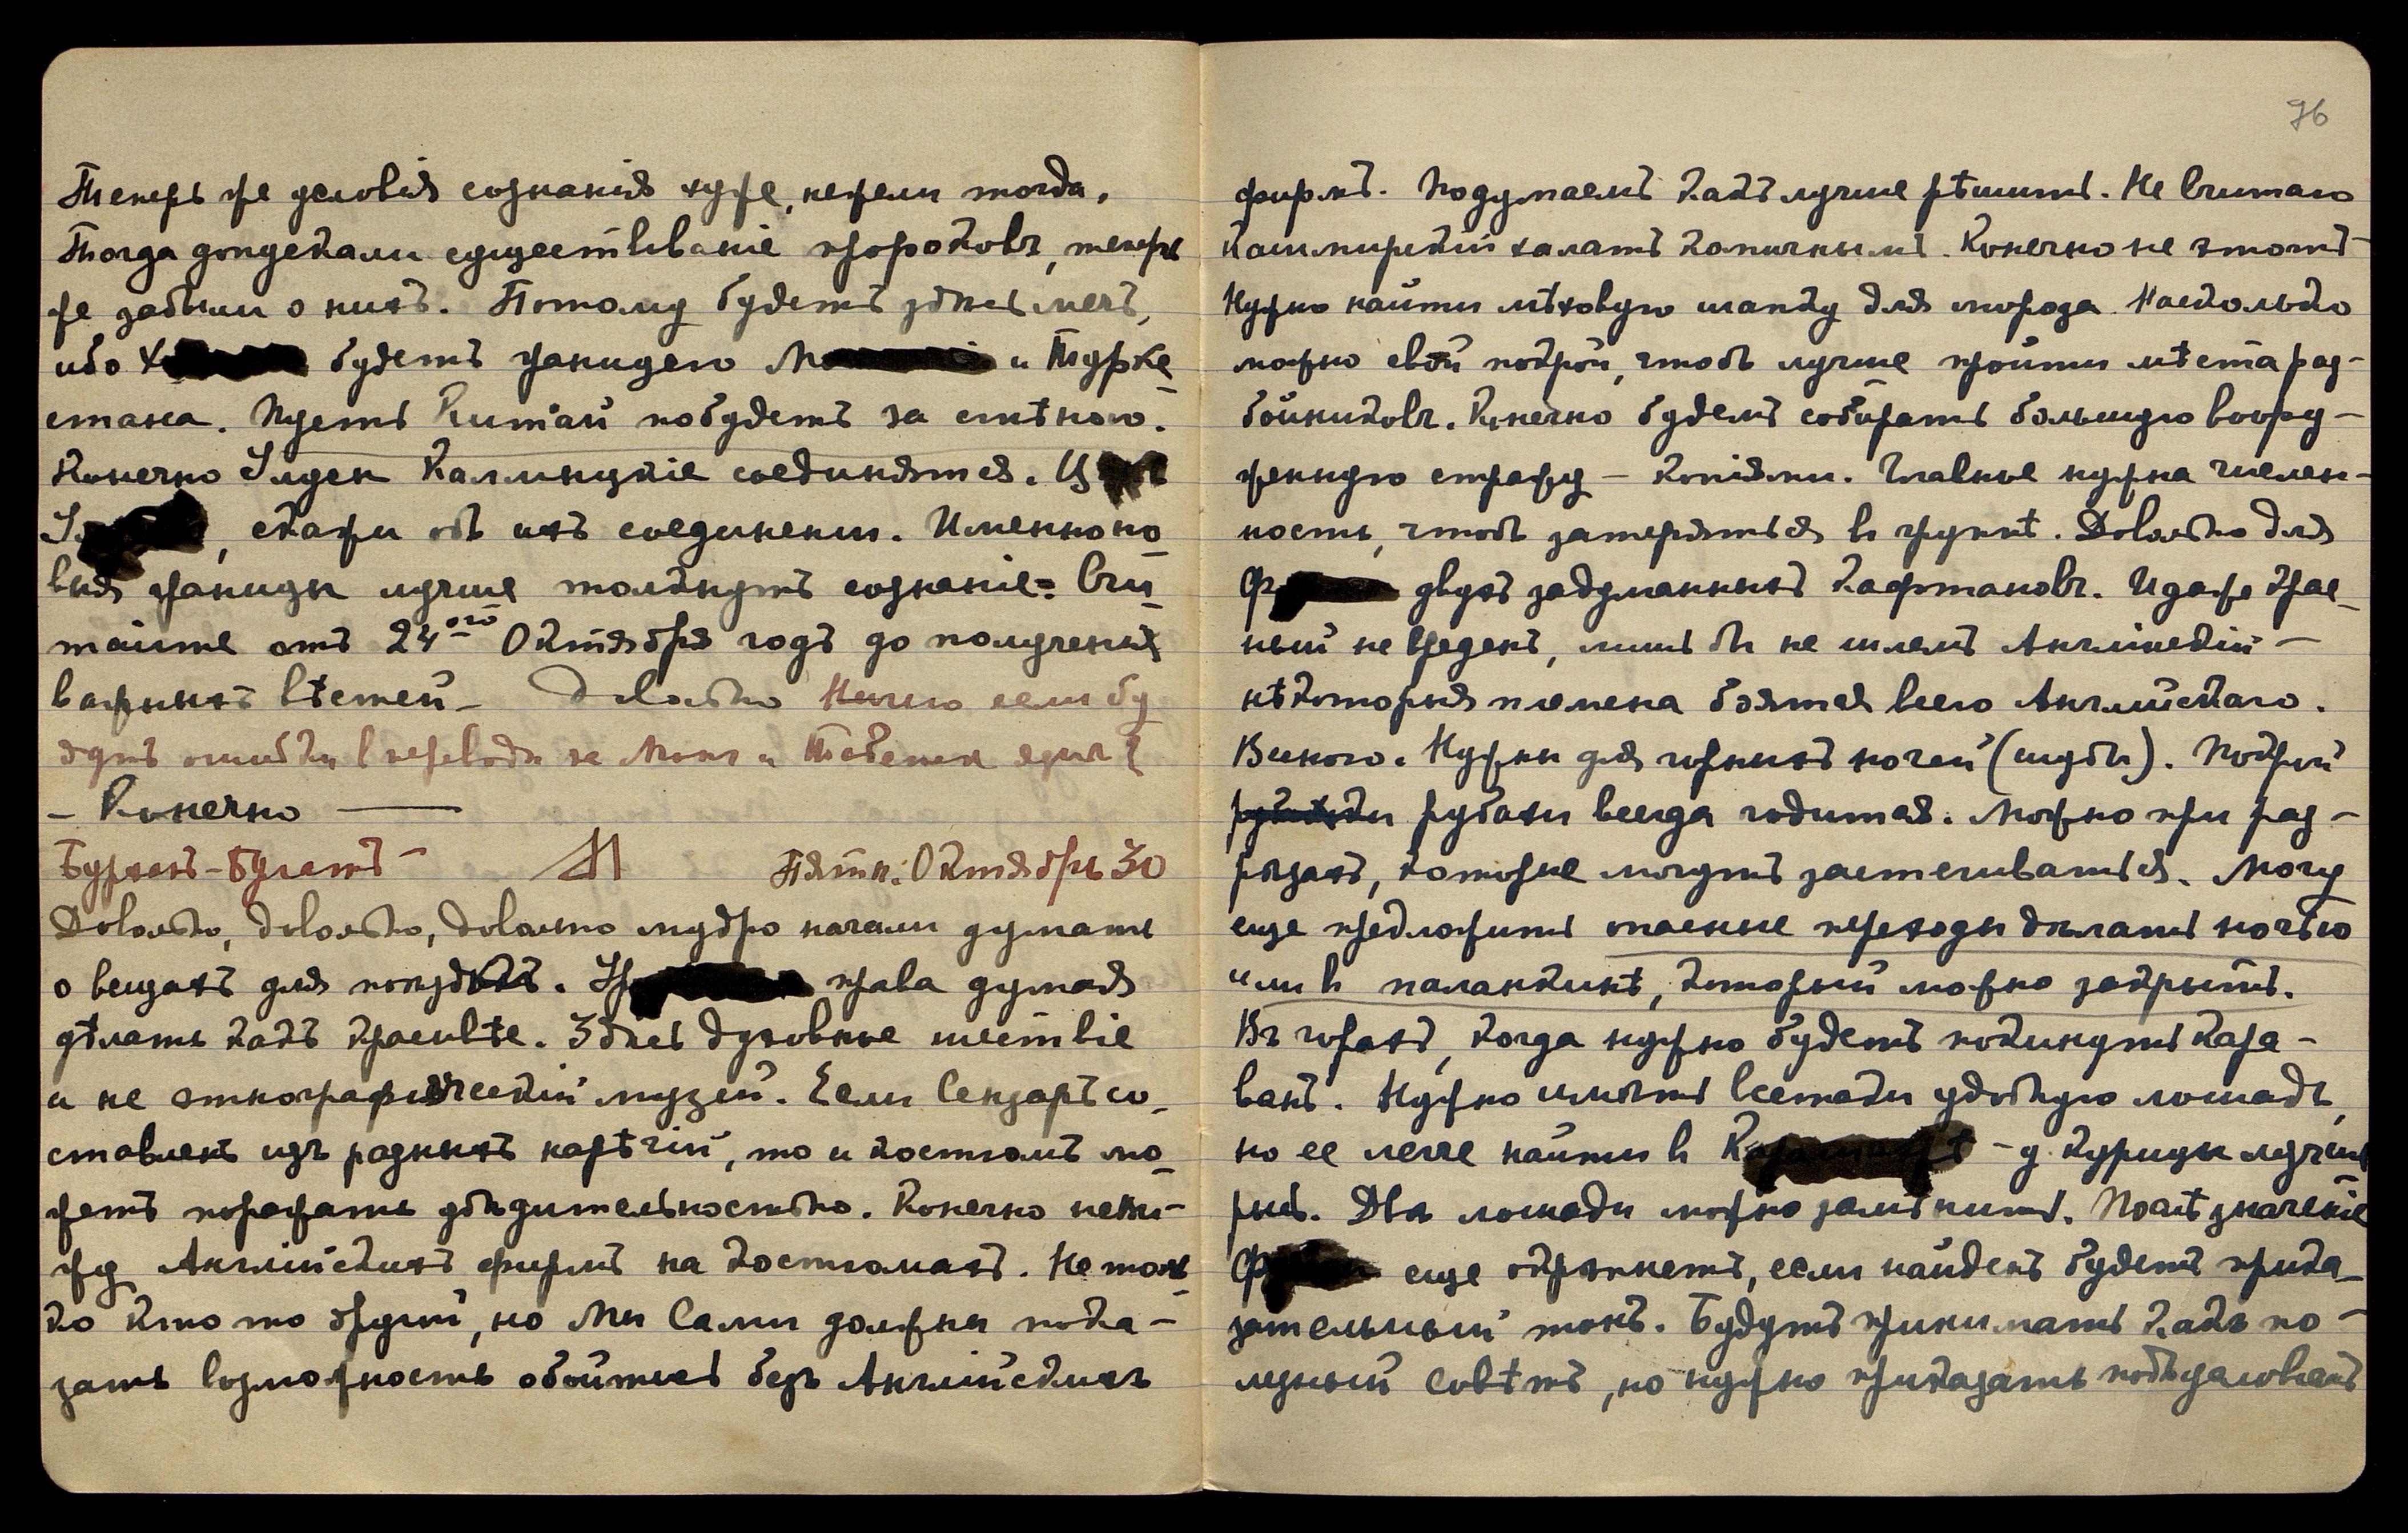 Теперь же условія сознанія хуже, нежели тогда.
Тогда допускали существованіе пророковъ, теперь
же забыли о нихъ. Потому будетъ здѣсь мечъ,
ибо будетъ границею и Турке-
стана. Пусть Китай побудетъ за стѣною.
Конечно Калмыцкіе соединятся.
скажи объ ихъ соединеніи. Именно но-
выя границы лучше толкнутъ сознаніе. Счи-
тайте отъ 24ого Октября годъ до полученія
важныхъ вѣстей – Довольно Ничего если бу-
дутъ ошибки въ переводѣ на Монг. и Тибетск. языкъ?
– Конечно —
Пятн. Октябрь 30
Довольно, довольно, довольно мудро начали думать
о вещахъ для поѣздки. права думая
дѣлать какъ красивѣе. Здѣсь духовное шествіе
и не этнографическій музей. Если Сензаръ со-
ставленъ изъ разныхъ нарѣчій, то и костюмъ мо-
жетъ поражать убѣдительностью. Конечно не вижу
Англійскихъ фирмъ на костюмахъ. Не толь-
ко кто то другой, но Мы Сами должны пока-
зать возможность обойтись безъ Англійскихъ
76
фирмъ. Подумаемъ какъ лучше рѣшить. Не считаю
Кашмирскій халатъ комичнымъ. Конечно не этотъ –
Нужно найти мѣховую шапку для мороза. Насколько
можно свой покрой, чтобъ лучше пройти мѣста раз-
бойниковъ. Конечно будемъ собирать большую воору-
женную стражу – копіями. Главное нужна числен-
ность, чтобъ затеряться въ группѣ. Довольно для
Ф двухъ задуманныхъ кафтановъ. И даже крас-
ный не вреденъ, лишь бы не шлемъ Англійскій –
нѣкоторыя племена боятся всего Англійскаго.
Всякого. Нужны для горныхъ ночей (шубы). Покрой
рубахи всегда годится. Можно при раз-
рѣзахъ, которые могутъ застегиваться. Могу
еще предложить опасные переходы дѣлать ночью
или въ паланкинѣ, который можно закрыть.
Въ горахъ, когда нужно будетъ покинуть кара-
ванъ. Нужно имѣть всетаки удобную лошадь,
но ее легче найти въ – у Курицы лучшія
Двѣ лошади можно замѣнить. Послѣ значеніе
Ф еще окрѣпнетъ, если найденъ будетъ прика-
зательный тонъ. Будутъ принимать какъ по-
лезный совѣтъ, но нужно приказать